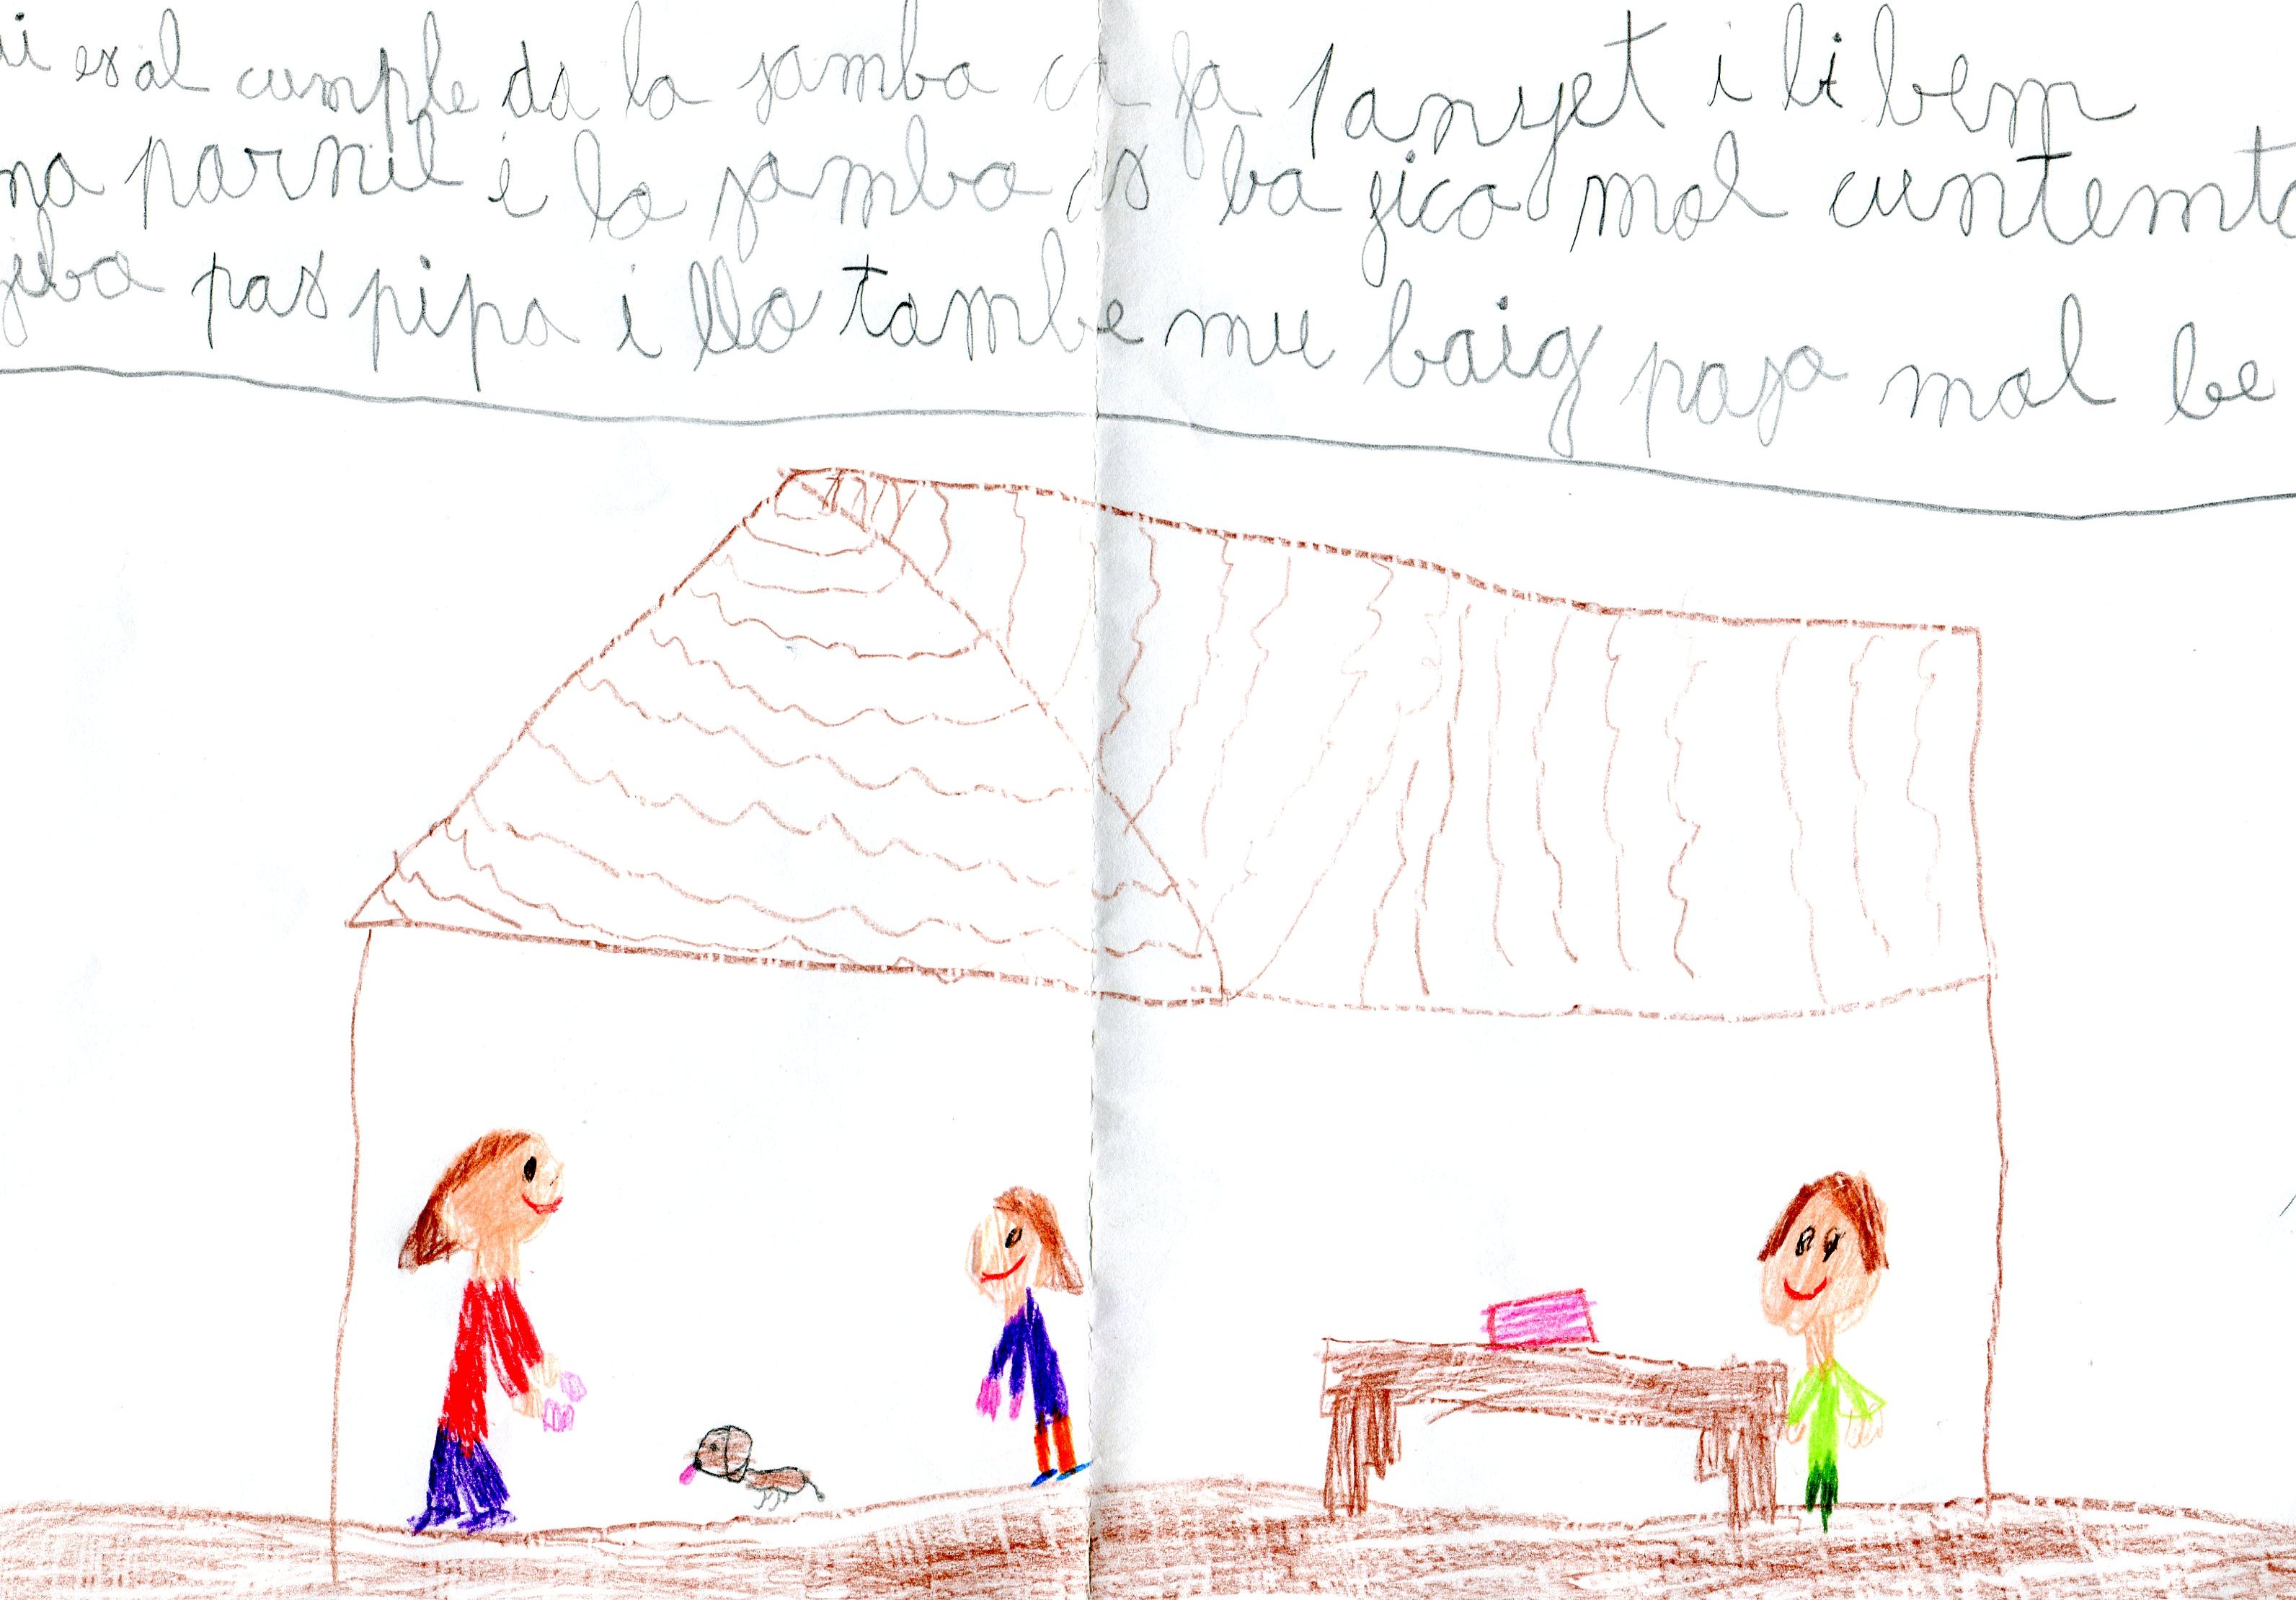 ui es al cumple da la samba ca fa 1 anyet i li bem
na parnil i la samba as ba fica mol cuntemta
jiba pas pipa i lla tambe mu baig pasa mol be